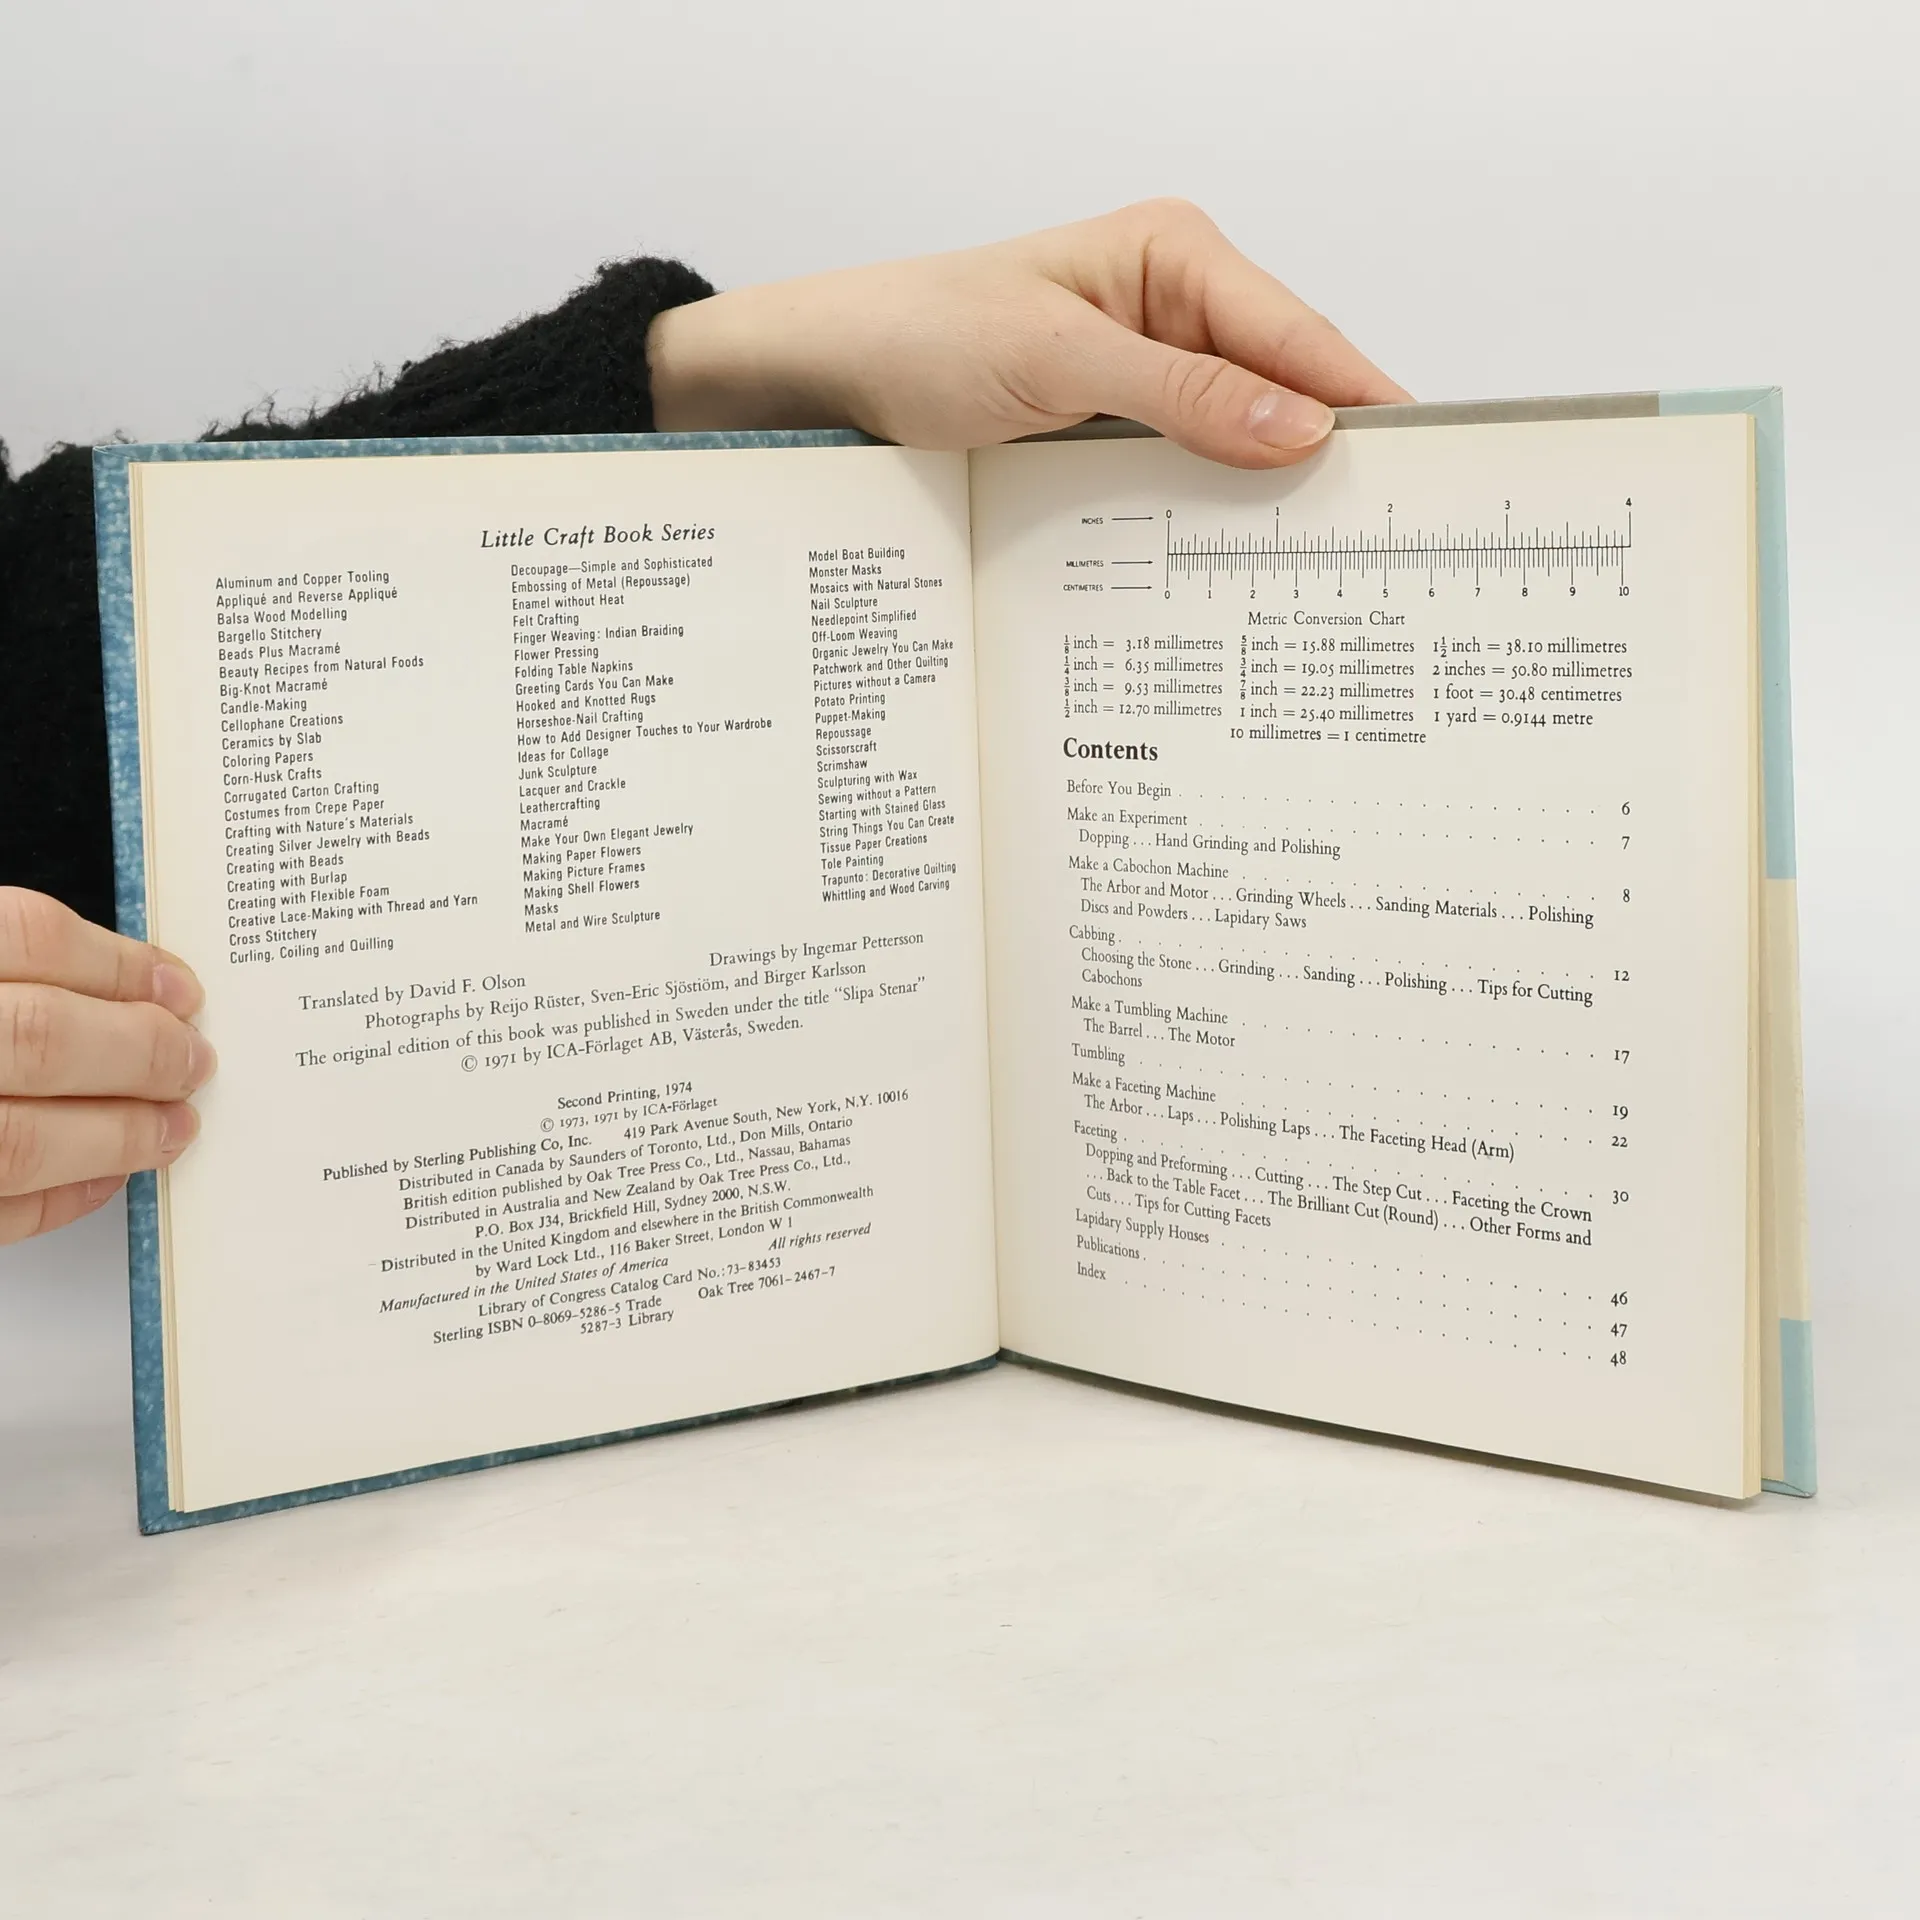 Little Craft Book Series
Aluminum and Copper Tooling
Appliqué and Reverse Appliqué
Balsa Wood Modelling
Bargello Stitchery
Beads Plus Macramé
Beauty Recipes from Natural Foods
Big-Knot Macramé
Candle-Making
Cellophane Creations
Ceramics by Slab
Coloring Papers
Corn-Husk Crafts
Corrugated Carton Crafting
Costumes from Crepe Paper
Crafting with Nature's Materials
Creating Silver Jewelry with Beads
Creating with Beads
Creating with Burlap
Creating with Flexible Foam
Creative Lace-Making with Thread and Yarn
Cross Stitchery
Curling, Coiling and Quilling
Decoupage—Simple and Sophisticated
Embossing of Metal (Repoussage)
Enamel without Heat
Felt Crafting
Finger Weaving: Indian Braiding
Flower Pressing
Folding Table Napkins
Greeting Cards You Can Make
Hooked and Knotted Rugs
Horseshoe-Nail Crafting
How to Add Designer Touches to Your Wardrobe
Ideas for Collage
Junk Sculpture
Lacquer and Crackle
Leathercrafting
Macramé
Make Your Own Elegant Jewelry
Making Paper Flowers
Making Picture Frames
Making Shell Flowers
Masks
Metal and Wire Sculpture
Model Boat Building
Monster Masks
Mosaics with Natural Stones
Nail Sculpture
Needlepoint Simplified
Off-Loom Weaving
Organic Jewelry You Can Make
Patchwork and Other Quilting
Pictures without a Camera
Potato Printing
Puppet-Making
Repoussage
Scissorscraft
Scrimshaw
Sculpturing with Wax
Sewing without a Pattern
Starting with Stained Glass
String Things You Can Create
Tissue Paper Creations
Tole Painting
Trapunto: Decorative Quilting
Whittling and Wood Carving
Translated by David F. Olson Drawings by Ingemar Pettersson
Photographs by Reijo Rüster, Sven-Eric Sjöstiöm, and Birger Karlsson
The original edition of this book was published in Sweden under the title "Slipa Stenar"
© 1971 by ICA-Förlaget AB, Västerås, Sweden.
Second Printing, 1974
© 1973, 1971 by ICA-Förlaget
Published by Sterling Publishing Co, Inc. 419 Park Avenue South, New York, N.Y. 10016
Distributed in Canada by Saunders of Toronto, Ltd., Don Mills, Ontario
British edition published by Oak Tree Press Co., Ltd., Nassau, Bahamas
Distributed in Australia and New Zealand by Oak Tree Press Co., Ltd.,
P.O. Box J34, Brickfield Hill, Sydney 2000, N.S.W.
Distributed in the United Kingdom and elsewhere in the British Commonwealth
by Ward Lock Ltd., 116 Baker Street, London W 1
Manufactured in the United States of America All rights reserved
Library of Congress Catalog Card No.: 73-83453
Sterling ISBN 0-8069-5286-5 Trade Oak Tree 7061-2467-7
5287-3 Library
INCHES 0 1 2 3 4
MILLIMETRES
CENTIMETRES 0 1 2 3 4 5 6 7 8 9 10
Metric Conversion Chart
⅛ inch = 3.18 millimetres ⅝ inch = 15.88 millimetres 1½ inch = 38.10 millimetres
¼ inch = 6.35 millimetres ¾ inch = 19.05 millimetres 2 inches = 50.80 millimetres
⅜ inch = 9.53 millimetres ⅞ inch = 22.23 millimetres 1 foot = 30.48 centimetres
½ inch = 12.70 millimetres 1 inch = 25.40 millimetres 1 yard = 0.9144 metre
10 millimetres = 1 centimetre
Contents
Before You Begin . . . . . . . . . . . . . . . . . . 6
Make an Experiment . . . . . . . . . . . . . . . . . 7
Dopping . . . Hand Grinding and Polishing
Make a Cabochon Machine . . . . . . . . . . . . . . . 8
The Arbor and Motor . . . Grinding Wheels . . . Sanding Materials . . . Polishing
Discs and Powders . . . Lapidary Saws
Cabbing . . . . . . . . . . . . . . . . . . . . 12
Choosing the Stone . . . Grinding . . . Sanding . . . Polishing . . . Tips for Cutting
Cabochons
Make a Tumbling Machine . . . . . . . . . . . . . . . 17
The Barrel . . . The Motor
Tumbling . . . . . . . . . . . . . . . . . . . . 19
Make a Faceting Machine . . . . . . . . . . . . . . . 22
The Arbor . . . Laps . . . Polishing Laps . . . The Faceting Head (Arm)
Faceting . . . . . . . . . . . . . . . . . . . . 30
Dopping and Preforming . . . Cutting . . . The Step Cut . . . Faceting the Crown
. . . Back to the Table Facet . . . The Brilliant Cut (Round) . . . Other Forms and
Cuts . . . Tips for Cutting Facets
Lapidary Supply Houses . . . . . . . . . . . . . . . 46
Publications . . . . . . . . . . . . . . . . . . . 47
Index . . . . . . . . . . . . . . . . . . . . . 48